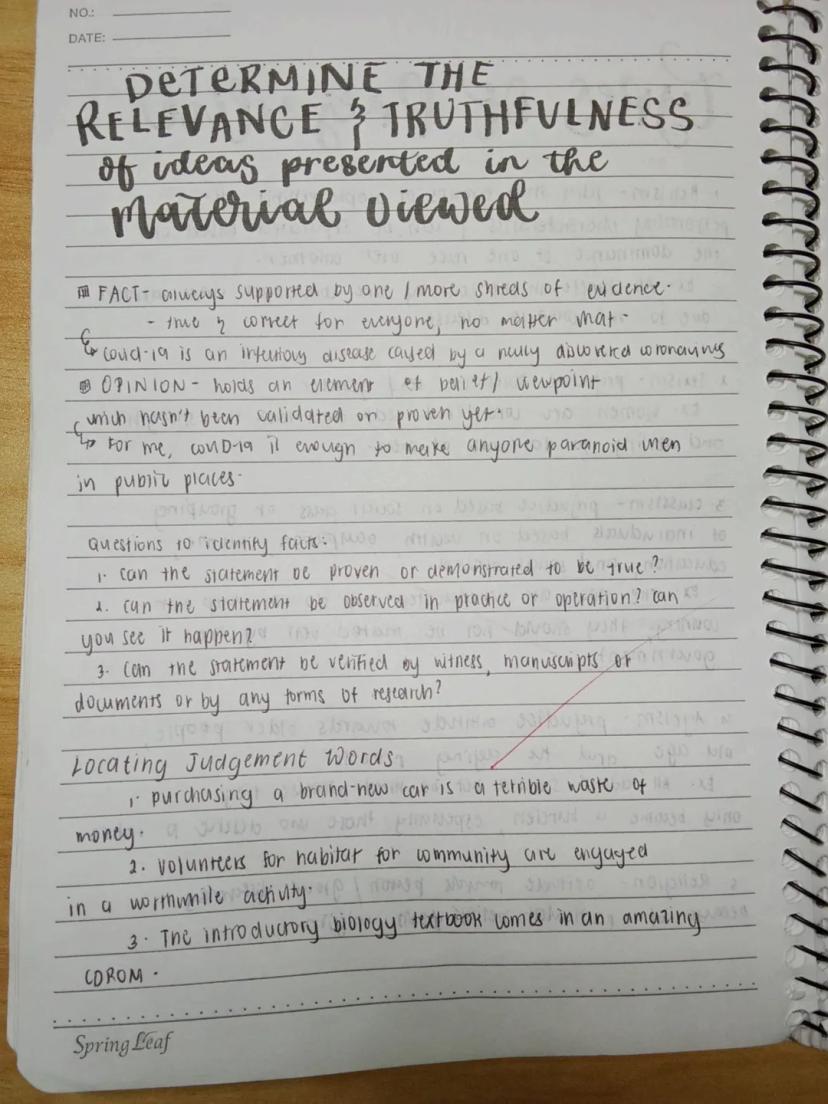 NO.:
DATE:
DETERMINE THE
RELEVANCE & TRUTHFULNESS
of ideas presented in the
Material viewed
FACT- always supported by one / more shreds of evidence.
- true & correct for everyone, no matter what.
↳ Covid-19 is an infectious disease caused by a newly discovered coronavirus
OPINION - holds an element of belief / viewpoint
which hasn't been validated or proven yet.
↳ For me, COVID-19 is enough to make anyone paranoid when
in public places.
Questions to identify facts:
1. Can the statement be proven or demonstrated to be true?
2. Can the statement be observed in practice or operation? Can
you see it happen?
3. Can the statement be verified by witness, manuscripts or
documents or by any forms of research?
Locating Judgement Words
1. purchasing a brand-new car is a terrible waste of
money.
2. Volunteers for habitat for community are engaged
in a worthwhile activity.
3. The introductory biology textbook comes in an amazing
CDROM.
Spring Leaf